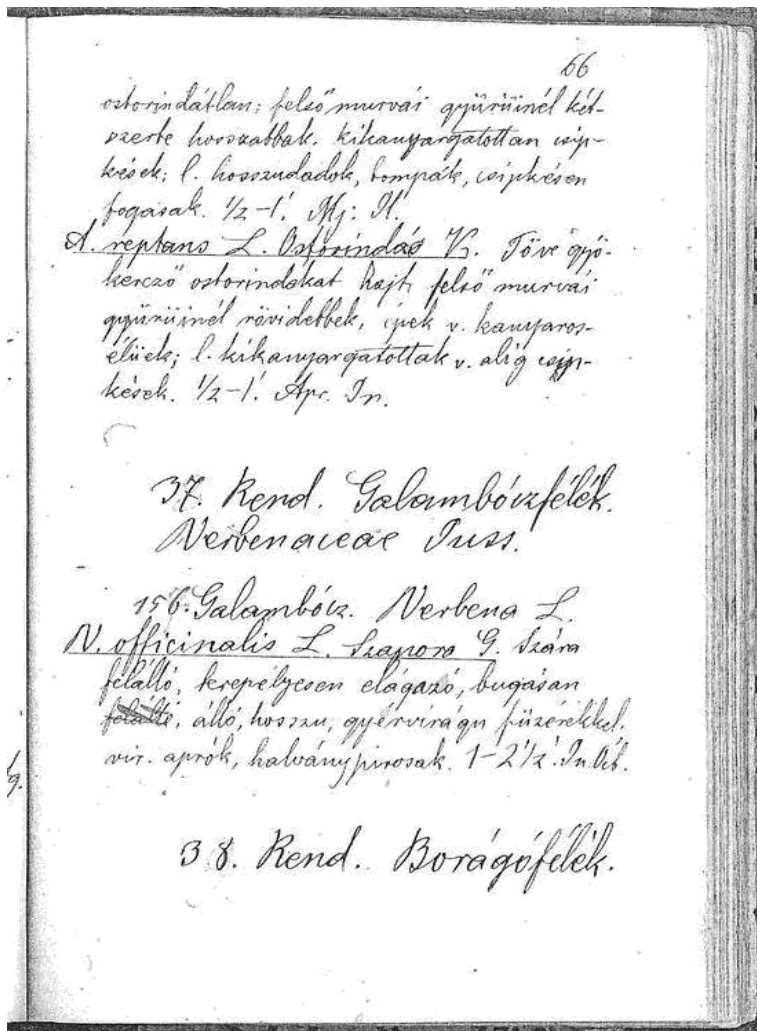 66
ostorindátlan; felső murvái gyürüinél két-
szerte hosszabbak. kikanyargatottan csip-
kések; l. hosszudadok, tompák, csipkésen
fogasak. ½–1'. Mj. Jl.
A. reptans L. Ostorindás K. Töve gyö-
kerező ostorindákat hajt, felső murvái
gyürüinél rövidebbek, épek v. kanyaros-
élüek; l. kikanyargatottak v. alig csip-
kések. ½–1'. Apr. Jn.
37. Rend. Galambóczfélék.
Verbenaceae Juss.
156. Galambócz. Verbena L.
V. officinalis L. Szapora G. Szára
felálló, terepélyesen elágazó, bugásan
felálló, álló, hosszu, gyérvirágu füzérekkel.
vir. aprók, halványpirosak. 1–2½'. Jn. Ocb.
38. Rend. Borágófélék.